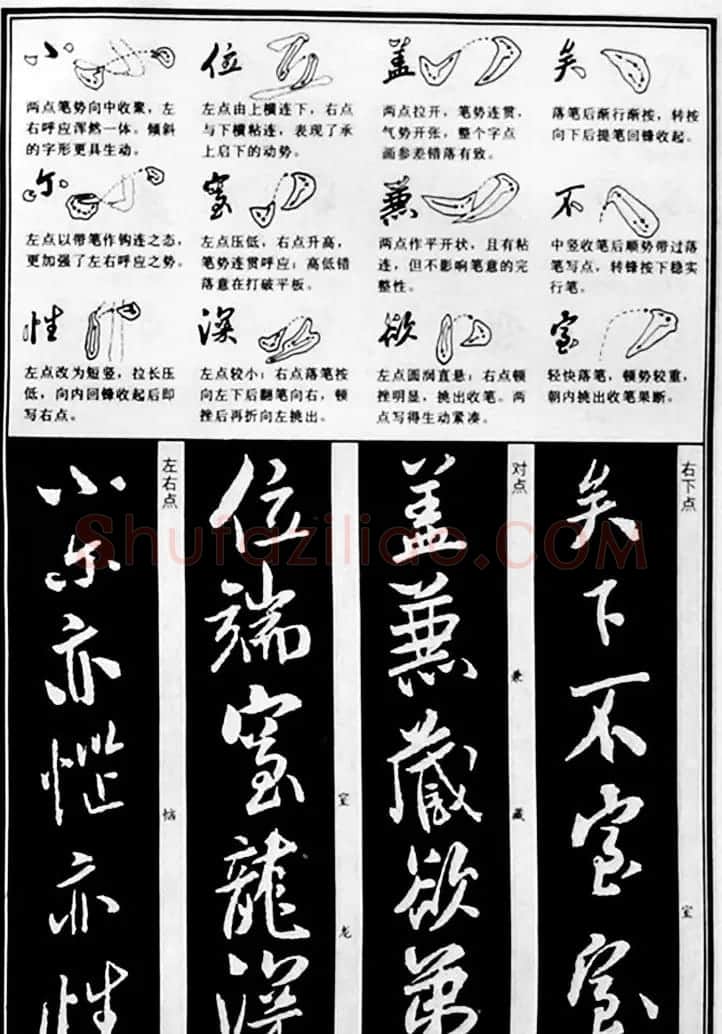 小
两点笔势向中收聚，左
右呼应浑然一体。倾斜
的字形更具生动。
位
左点由上横连下，右点
与下横粘连，表现了承
上启下的动势。
盖
两点拉开，笔势连贯，
气势开张，整个字点
画参差错落有致。
矣
落笔后渐行渐按，转按
向下后提笔回锋收起。
尔
左点以带笔作钩连之态，
更加强了左右呼应之势。
室
左点压低，右点升高，
笔势连贯呼应；高低错
落意在打破平板。
兼
两点作平开状，且有粘
连，但不影响笔意的完
整性。
不
中竖收笔后顺势带过落
笔写点，转锋按下稳实
行笔。
性
左点改为短竖，拉长压
低，向内回锋收起后即
写右点。
深
左点较小；右点落笔按
向左下后翻笔向右，顿
挫后再折向左挑出。
欲
左点圆润直悬；右点顿
挫明显，挑出收笔。两
点写得生动紧凑。
室
轻快落笔，顿势较重，
朝内挑出收笔果断。
右下点
矣
下
不
室
室
室
对点
盖
兼
藏
欲
弟
兼
藏
位
端
室
龍
深
室
龙
左右点
小
尔
亦
亦
性
Shufaziliao.COM